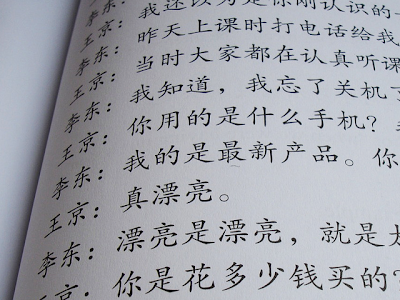 李东：我还以为是你刚认识的
王京：昨天上课时打电话给我
当时大家都在认真听课
李东：我知道，我忘了关机了
王京：你用的是什么手机？
李东：我的是最新产品。你
王京：真漂亮。
李东：漂亮是漂亮，就是太
王京：你是花多少钱买的？